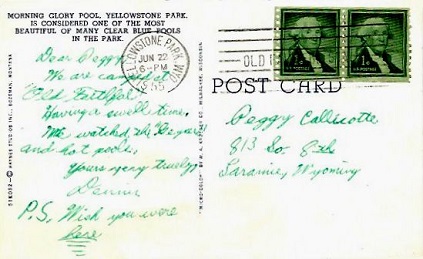 MORNING GLORY POOL, YELLOWSTONE PARK,
IS CONSIDERED ONE OF THE MOST
BEAUTIFUL OF MANY CLEAR BLUE POOLS
IN THE PARK.
Dear Peggy
We are camped at
"Old Faithful"
Having a swell time.
We watched the
and hot pools.
Yours very truly,
P.S. Wish you were
here
YELLOWSTONE PARK, WYO.
JUN 22
6-PM
1955
OLD
1¢
U.S. POSTAGE
1¢
U.S. POSTAGE
POST CARD
Peggy
813 So. 8th
Laramie, Wyoming
HAYNES STUDIOS INC., BOZEMAN, MONTANA
MILWAUKEE, WISCONSIN